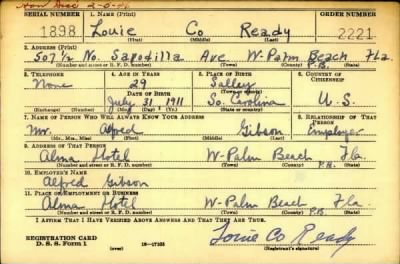 SERIAL NUMBER 1. NAME (Print) ORDER NUMBER
1898 Louie Co Ready 2221
(First) (Middle) (Last)
2. ADDRESS (Print)
507 1/2 No. Sapodilla Ave W-Palm Beach Fla.
(Number and street or R. F. D. number) (Town) (County) P.B. (State)
3. TELEPHONE 4. AGE IN YEARS 5. PLACE OF BIRTH 6. COUNTRY OF CITIZENSHIP
None 29 Salley
DATE OF BIRTH (Town or county)
July 31 1911 So. Carolina U.S.
(Exchange) (Number) (Mo.) (Day) (Yr.) (State or country)
7. NAME OF PERSON WHO WILL ALWAYS KNOW YOUR ADDRESS 8. RELATIONSHIP OF THAT PERSON
Mr. Alfred Gibson Employer
(Mr., Mrs., Miss) (First) (Middle) (Last)
9. ADDRESS OF THAT PERSON
Alma Hotel W-Palm Beach Fla.
(Number and street or R. F. D. number) (Town) (County) P.B. (State)
10. EMPLOYER'S NAME
Alfred Gibson
11. PLACE OF EMPLOYMENT OR BUSINESS
Alma Hotel W-Palm Beach Fla.
(Number and street or R. F. D. number) (Town) (County) P.B. (State)
I AFFIRM THAT I HAVE VERIFIED ABOVE ANSWERS AND THAT THEY ARE TRUE.
REGISTRATION CARD
D. S. S. Form 1 (over) 16-17105
Louie Co Ready